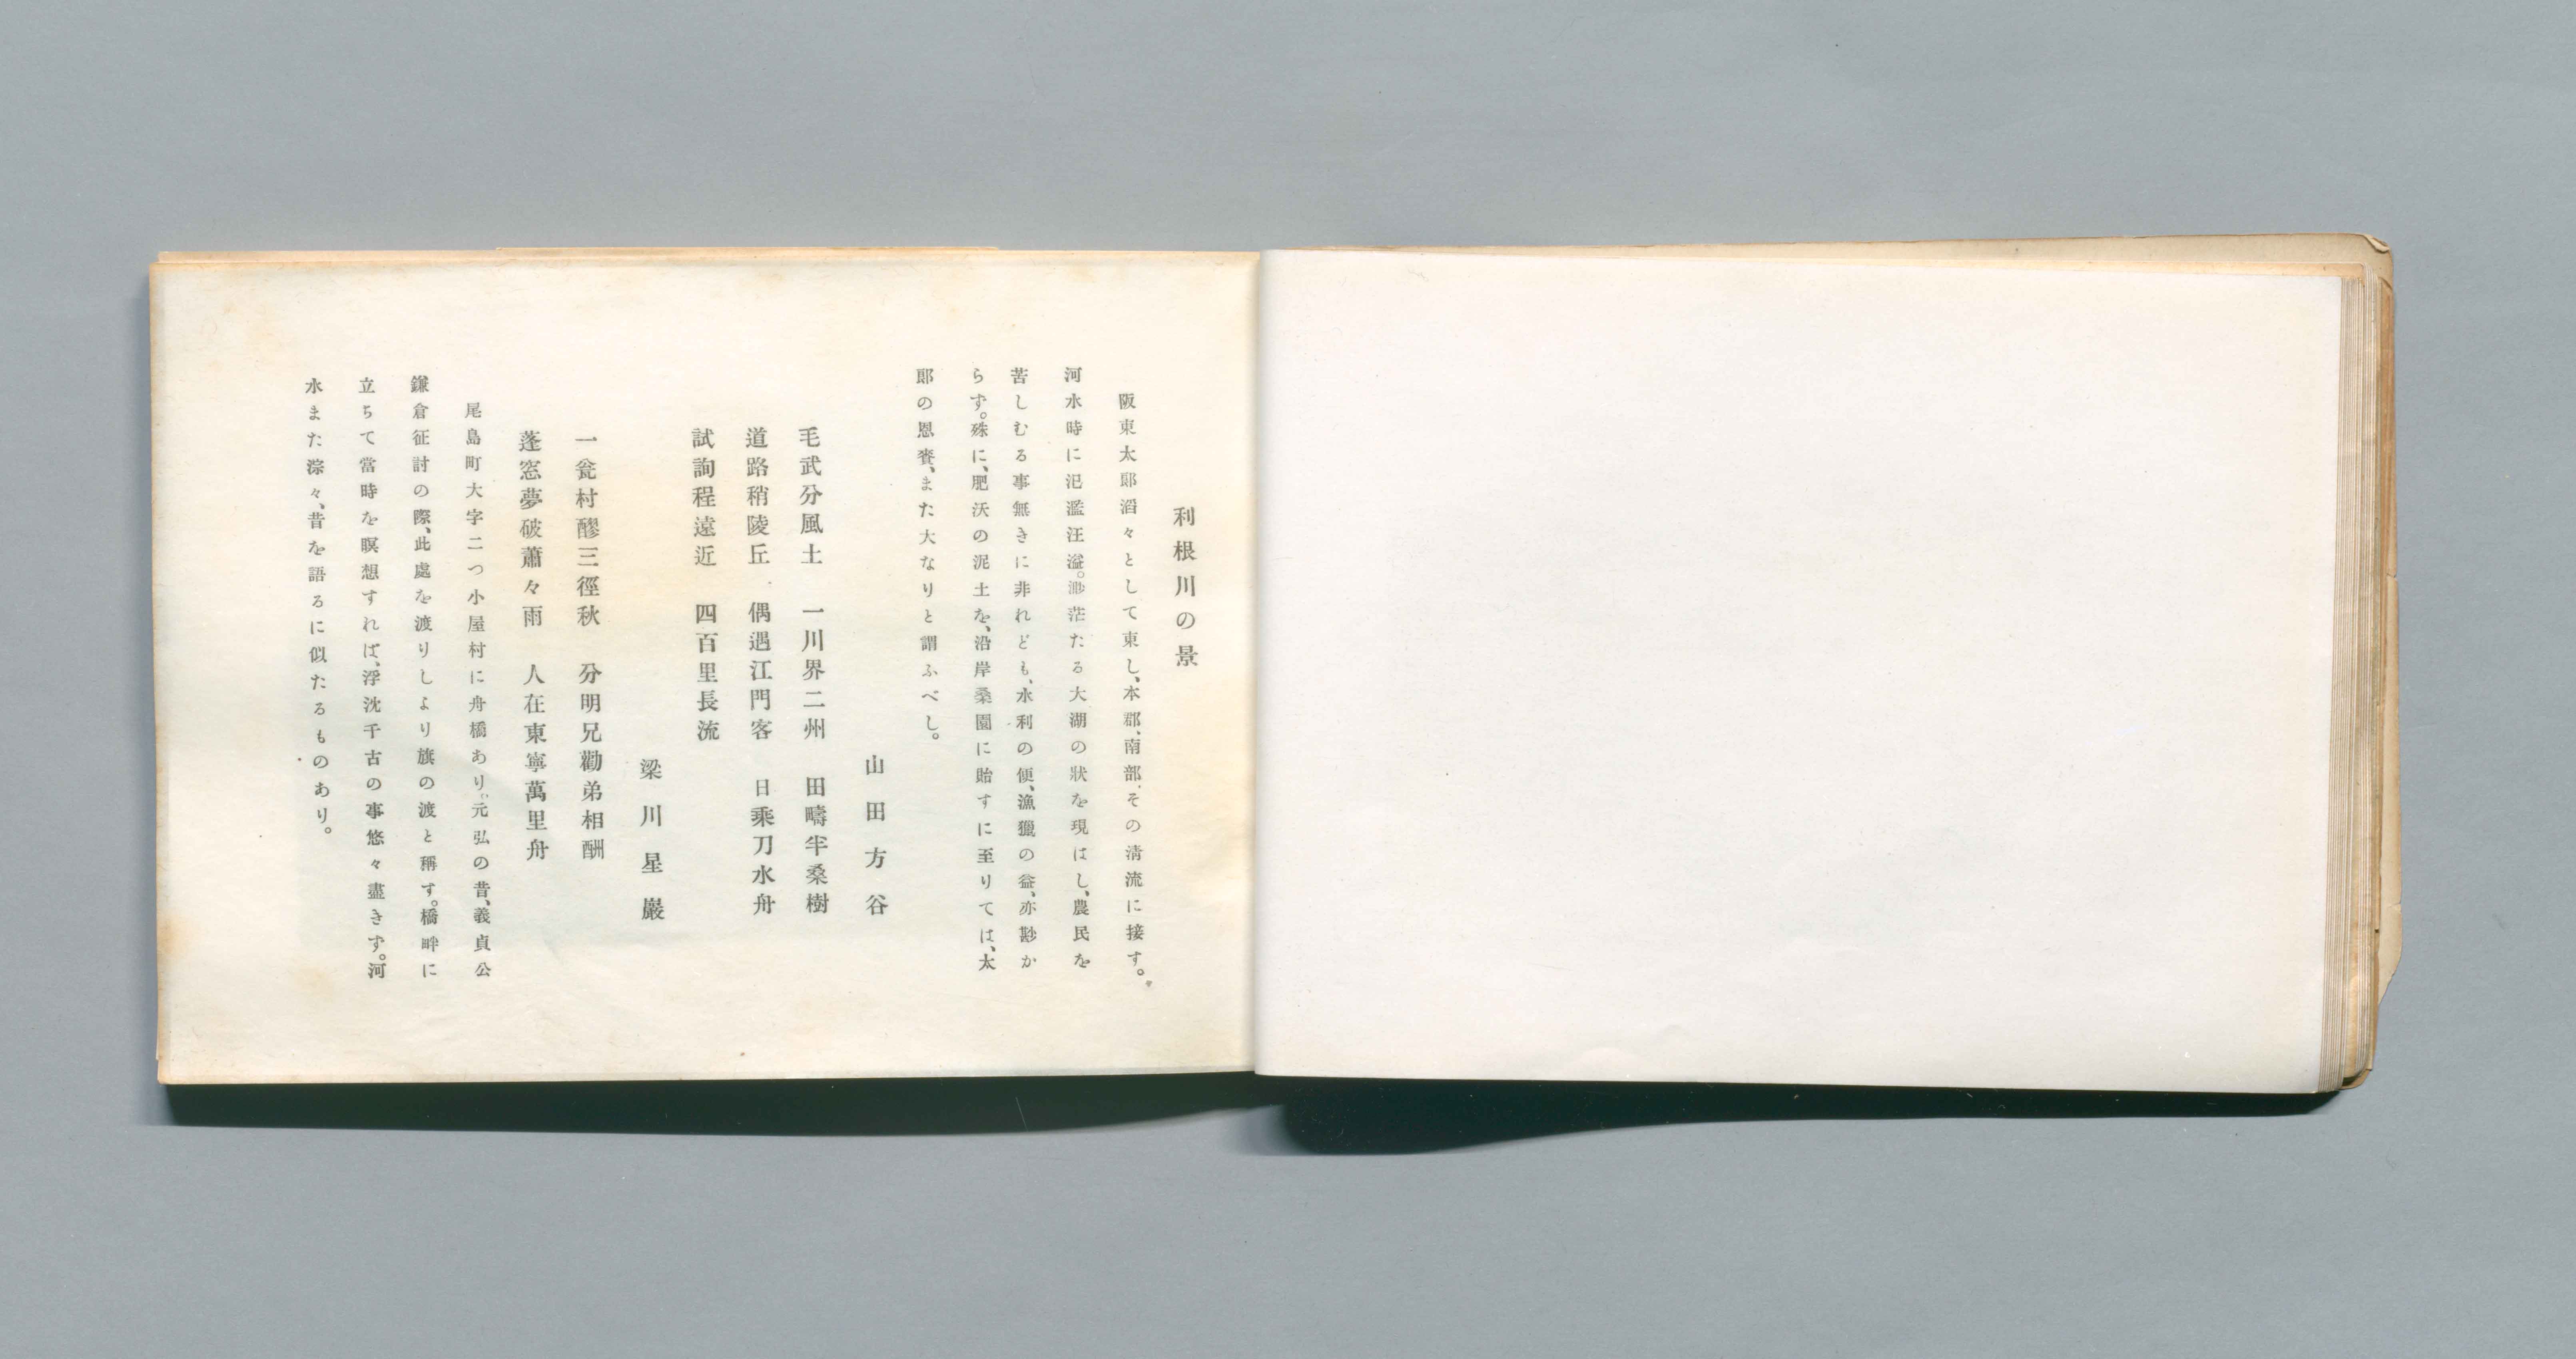 利根川の景
阪東太郎滔々として東し、本郡、南部、その清流に接す。
河水時に氾濫汪溢。渺茫たる大湖の狀を現はし、農民を
苦しむる事無きに非れども、水利の便、漁獵の益、亦尠か
らず。殊に、肥沃の泥土を、沿岸桑園に貽すに至りては、太
郎の恩賚、また大なりと謂ふべし。
山田方谷
毛武分風土　一川界二州　田疇半桑樹
道路稍陵丘　偶遇江門客　日乘刀水舟
試詢程遠近　四百里長流
梁川星巖
一瓮村醪三徑秋　分明兄勸弟相酬
蓬窓夢破蕭々雨　人在東寧萬里舟
尾島町大字二つ小屋村に舟橋あり。元弘の昔、義貞公
鎌倉征討の際、此處を渡りしより旗の渡と稱す。橋畔に
立ちて當時を瞑想すれば、浮沈千古の事悠々盡きず。河
水また淙々、昔を語るに似たるものあり。